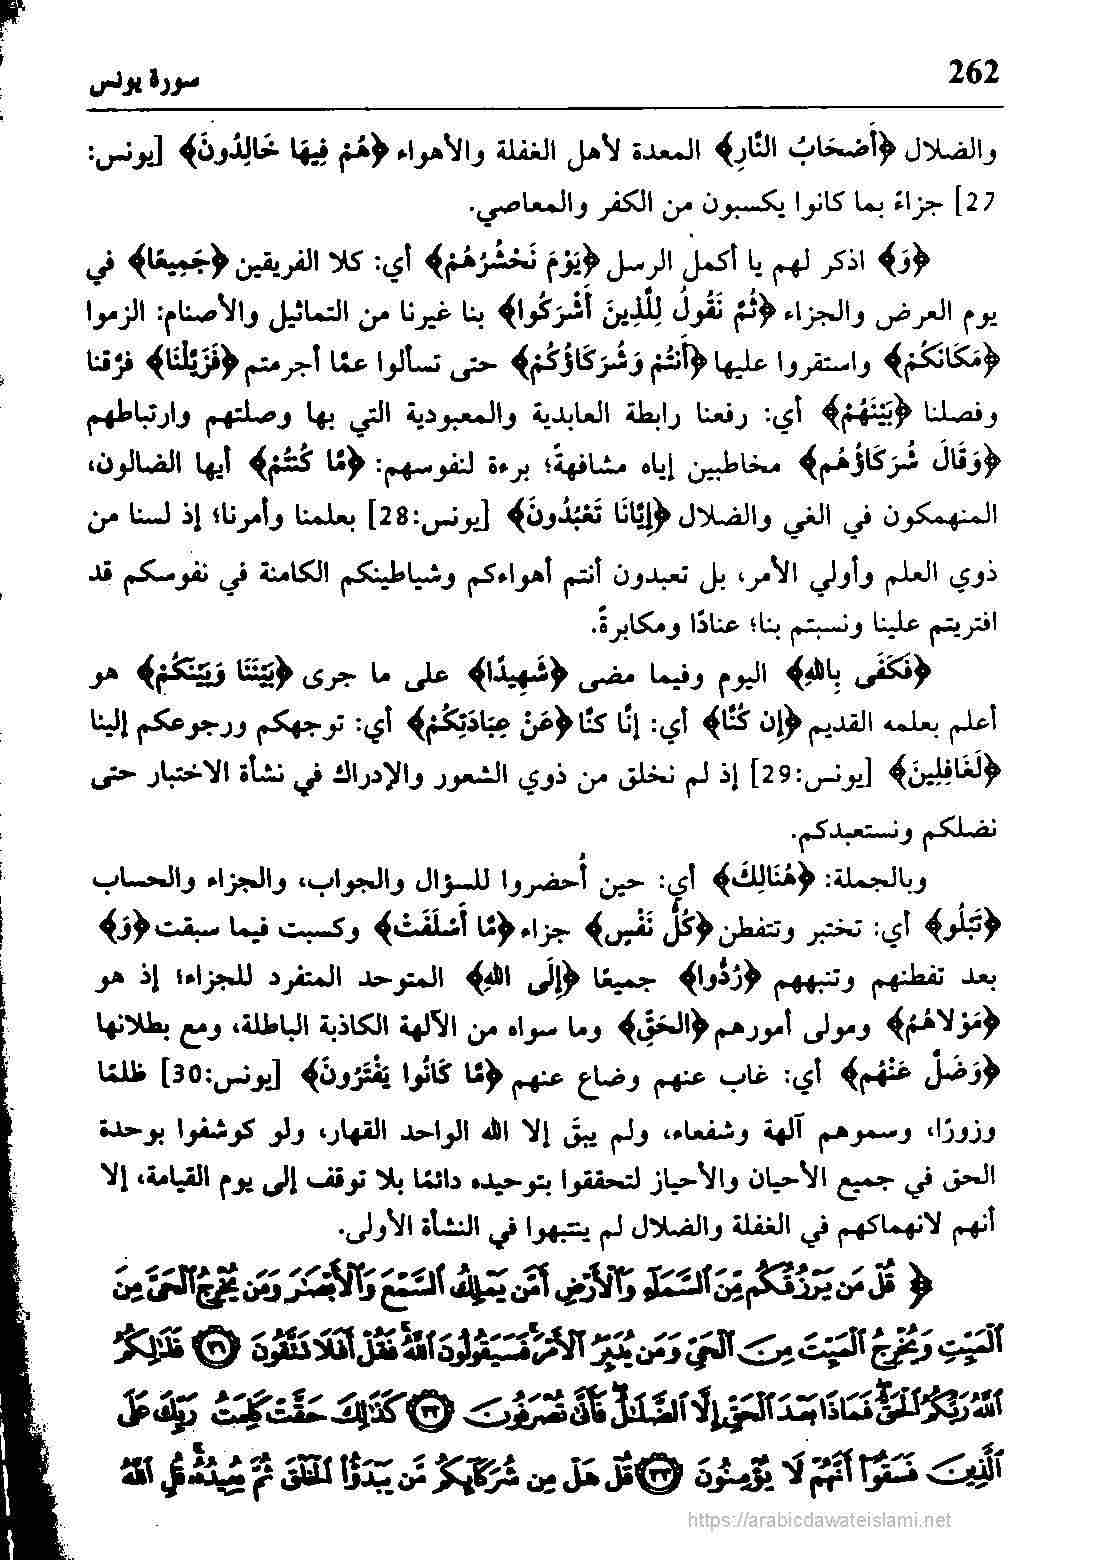 262
سورة يونس
والضلال ﴿أَصْحَابُ النَّارِ﴾ المعدة لأهل الغفلة والأهواء ﴿هُمْ فِيهَا خَالِدُونَ﴾ [يونس:
27] جزاءً بما كانوا يكسبون من الكفر والمعاصي.
﴿وَ﴾ اذكر لهم يا أكمل الرسل ﴿يَوْمَ نَحْشُرُهُمْ﴾ أي: كلا الفريقين ﴿جَمِيعًا﴾ في
يوم العرض والجزاء ﴿ثُمَّ نَقُولُ لِلَّذِينَ أَشْرَكُوا﴾ بنا غيرنا من التماثيل والأصنام: الزموا
﴿مَكَانَكُمْ﴾ واستقروا عليها ﴿أَنتُمْ وَشُرَكَاؤُكُمْ﴾ حتى تسألوا عمَّا أجرمتم ﴿فَزَيَّلْنَا﴾ فرَّقنا
وفصلنا ﴿بَيْنَهُمْ﴾ أي: رفعنا رابطة العابدية والمعبودية التي بها وصلتهم وارتباطهم
﴿وَقَالَ شُرَكَاؤُهُم﴾ مخاطبين إياه مشافهةً؛ برءة لنفوسهم: ﴿مَّا كُنتُمْ﴾ أيها الضالون،
المنهمكون في الغي والضلال ﴿إِيَّانَا تَعْبُدُونَ﴾ [يونس:28] بعلمنا وأمرنا؛ إذ لسنا من
ذوي العلم وأولي الأمر، بل تعبدون أنتم أهواءكم وشياطينكم الكامنة في نفوسكم قد
افتريتم علينا ونسبتم بنا؛ عنادًا ومكابرةً.
﴿فَكَفَى بِاللهِ﴾ اليوم وفيما مضى ﴿شَهِيدًا﴾ على ما جرى ﴿بَيْنَنَا وَبَيْنَكُمْ﴾ هو
أعلم بعلمه القديم ﴿إِن كُنَّا﴾ أي: إنَّا كنَّا ﴿عَنْ عِبَادَتِكُمْ﴾ أي: توجهكم ورجوعكم إلينا
﴿لَغَافِلِينَ﴾ [يونس:29] إذ لم نخلق من ذوي الشعور والإدراك في نشأة الاختبار حتى
نضلكم ونستعبدكم.
وبالجملة: ﴿هُنَالِكَ﴾ أي: حين أُحضروا للسؤال والجواب، والجزاء والحساب
﴿تَبْلُو﴾ أي: تختبر وتتفطن ﴿كُلُّ نَفْسٍ﴾ جزاء ﴿مَّا أَسْلَفَتْ﴾ وكسبت فيما سبقت ﴿وَ﴾
بعد تفطنهم وتنبههم ﴿رُدُّوا﴾ جميعًا ﴿إِلَى اللهِ﴾ المتوحد المتفرد للجزاء؛ إذ هو
﴿مَوْلاهُمُ﴾ ومولى أمورهم ﴿الحَقِّ﴾ وما سواه من الآلهة الكاذبة الباطلة، ومع بطلانها
﴿وَضَلَّ عَنْهُم﴾ أي: غاب عنهم وضاع عنهم ﴿مَّا كَانُوا يَفْتَرُونَ﴾ [يونس:30] ظلمًا
وزورًا، وسموهم آلهة وشفعاء، ولم يبقَ إلا الله الواحد القهار، ولو كوشفوا بوحدة
الحق في جميع الأحيان والأحياز لتحققوا بتوحيده دائمًا بلا توقف إلى يوم القيامة، إلا
أنهم لانهماكهم في الغفلة والضلال لم ينتبهوا في النشأة الأولى.
﴿ قُلْ مَن يَرْزُقُكُم مِّنَ ٱلسَّمَآءِ وَٱلْأَرْضِ أَمَّن يَمْلِكُ ٱلسَّمْعَ وَٱلْأَبْصَـٰرَ وَمَن يُخْرِجُ ٱلْحَىَّ مِنَ
ٱلْمَيِّتِ وَيُخْرِجُ ٱلْمَيِّتَ مِنَ ٱلْحَىِّ وَمَن يُدَبِّرُ ٱلْأَمْرَ ۚ فَسَيَقُولُونَ ٱللَّهُ ۚ فَقُلْ أَفَلَا تَتَّقُونَ ﴿٣١﴾ فَذَٰلِكُمُ
ٱللَّهُ رَبُّكُمُ ٱلْحَقُّ ۖ فَمَاذَا بَعْدَ ٱلْحَقِّ إِلَّا ٱلضَّلَـٰلُ ۖ فَأَنَّىٰ تُصْرَفُونَ ﴿٣٢﴾ كَذَٰلِكَ حَقَّتْ كَلِمَتُ رَبِّكَ عَلَى
ٱلَّذِينَ فَسَقُوٓا۟ أَنَّهُمْ لَا يُؤْمِنُونَ ﴿٣٣﴾ قُلْ هَلْ مِن شُرَكَآئِكُم مَّن يَبْدَؤُا۟ ٱلْخَلْقَ ثُمَّ يُعِيدُهُۥ ۚ قُلِ ٱللَّهُ
https://arabicdawateislami.net